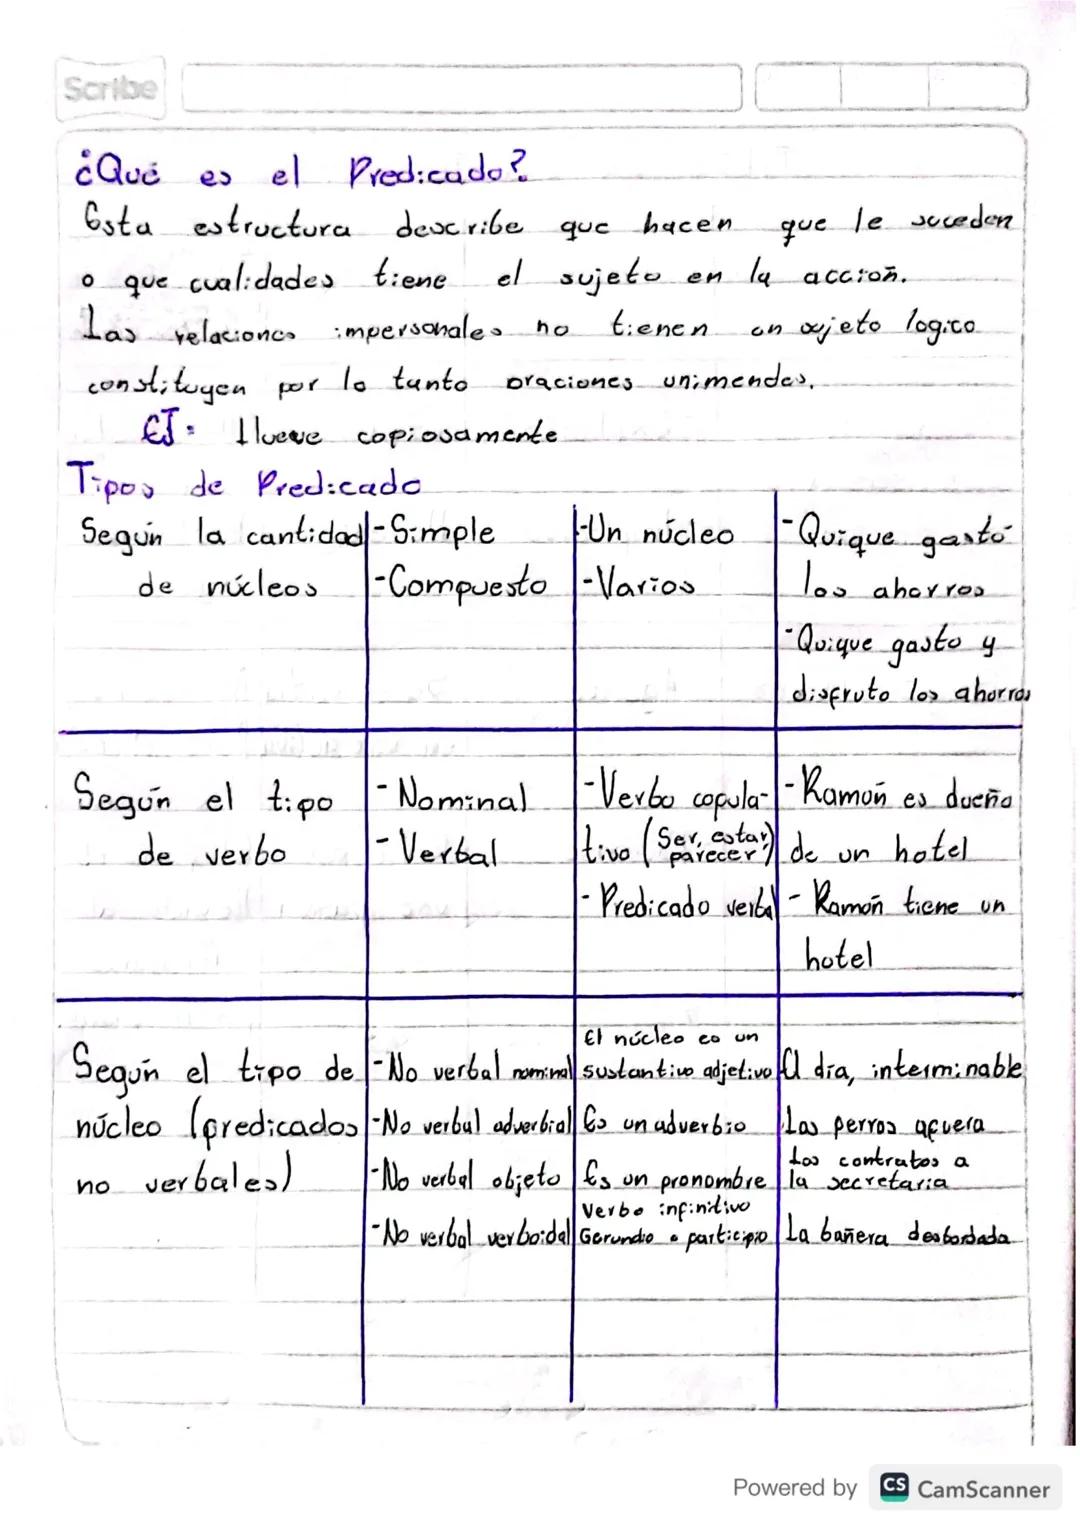 Scribe
¿Qué es el Predicado?
Esta estructura describe que hacen que le suceden
o que cualidades tiene el sujeto en la acción.
Las relaciones impersonales no tienen un sujeto logico
constituyen por lo tanto oraciones unimendes.
EJ: llueve copiosamente
Tipos de Predicado
Según la cantidad
de núcleos
-Simple
-Compuesto
-Un núcleo
-Varios
-Quique gastó
los ahorros
-Quique gasto y
disfruto los ahorros
Según el tipo
de verbo
-Nominal
-Verbal
-Verbo copula-
tivo (Ser, estar, parecer)
-Predicado verbal
-Ramón es dueño
de un hotel
-Ramón tiene un
hotel
Según el tipo de
núcleo (predicados
no verbales)
-No verbal nominal
-No verbal adverbial
-No verbal objeto
-No verbal verboidal
El núcleo es un
sustantivo adjetivo
Es un adverbio
Es un pronombre
Verbo infinitivo
Gerundio o participio
El día, interminable
Los perros afuera
Los contratos a
la secretaria
La bañera desbordada
Powered by CS CamScanner